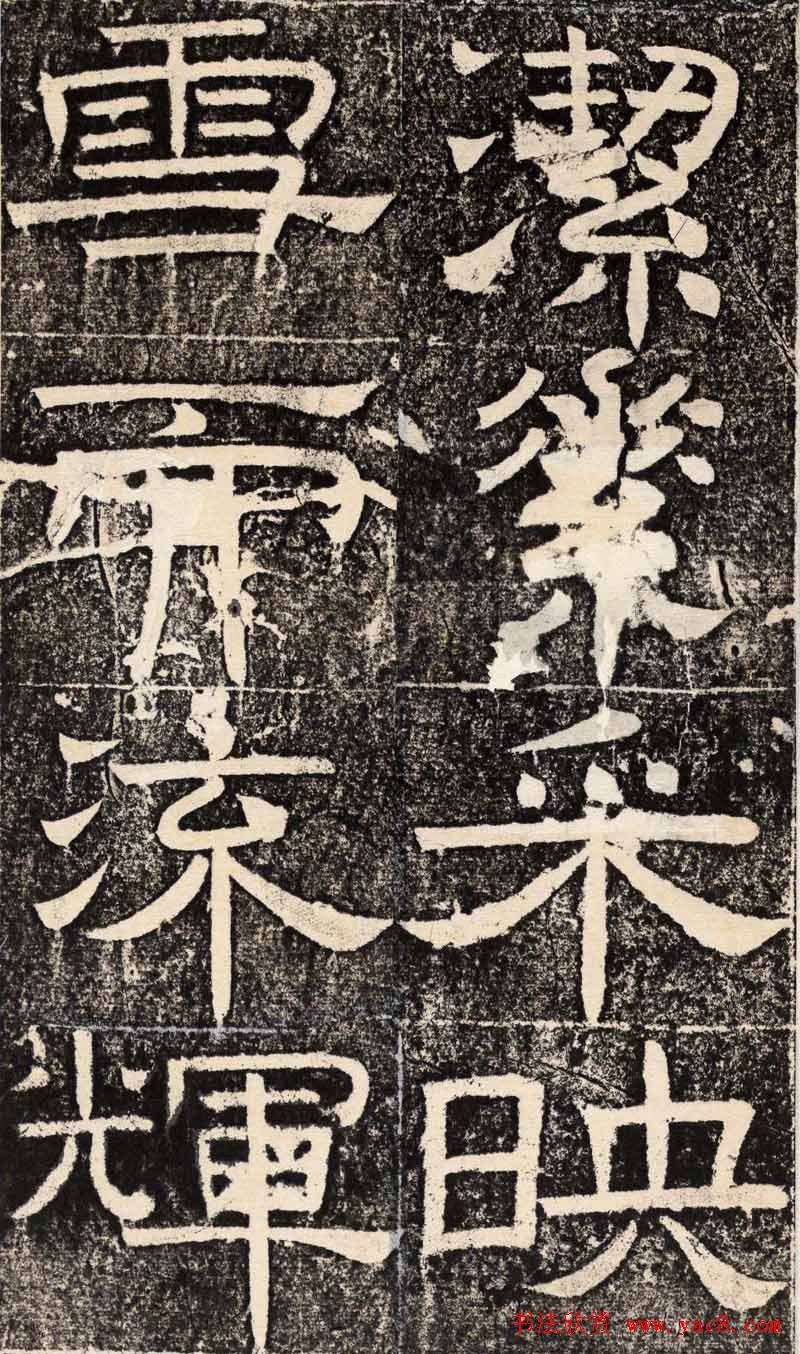 潔采映
雪而流輝
书法欣赏 www.yac8.com